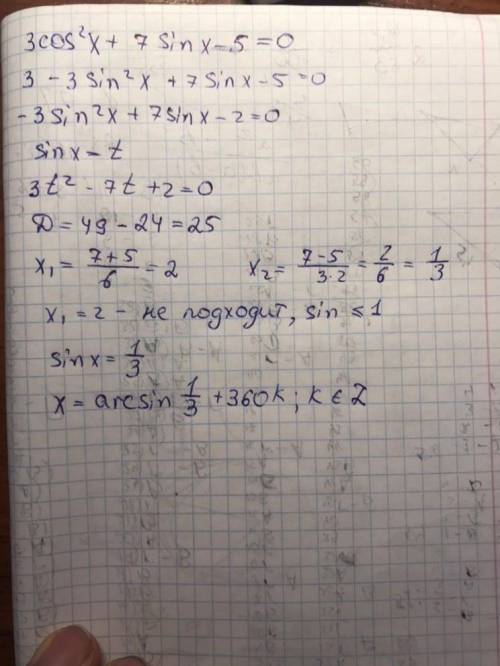 3cos²x + 7sinx - 5 = 0
3 - 3sin²x + 7sinx - 5 = 0
-3sin²x + 7sinx - 2 = 0
sinx - t
3t² - 7t + 2 = 0
D = 49 - 24 = 25
x₁ = (7+5)/6 = 2 x₂ = (7-5)/(3·2) = 2/6 = 1/3
x₁ = 2 - не подходит, sin ≤ 1
sinx = 1/3
x = arcsin 1/3 + 360k; k ∈ Z